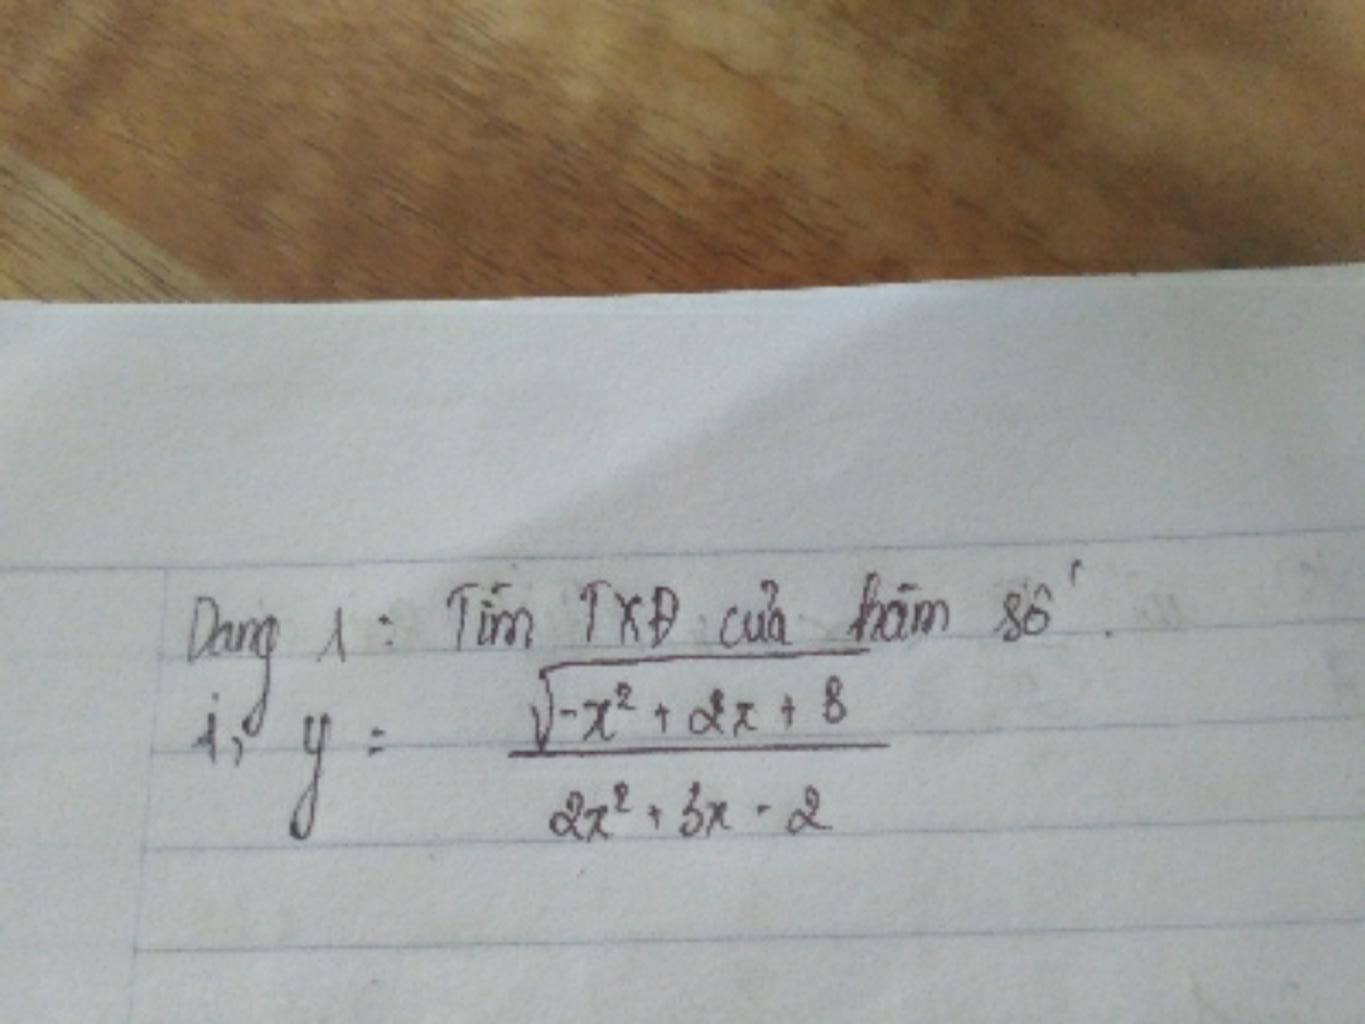 Dạng 1: Tìm TXĐ của hàm số.
i, y = \frac{\sqrt{-x^2 + 2x + 8}}{2x^2 + 3x - 2}